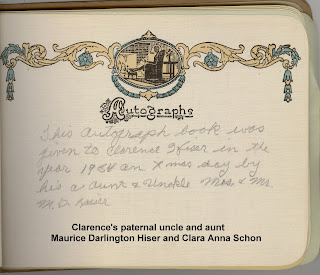 Autographs
This autograph book was
given to Clarence Hiser in the
year 1934 an Xmas day by
his a aunt & Unckle Mrs & Mr.
M. D. Hiser
Clarence's paternal uncle and aunt
Maurice Darlington Hiser and Clara Anna Schon